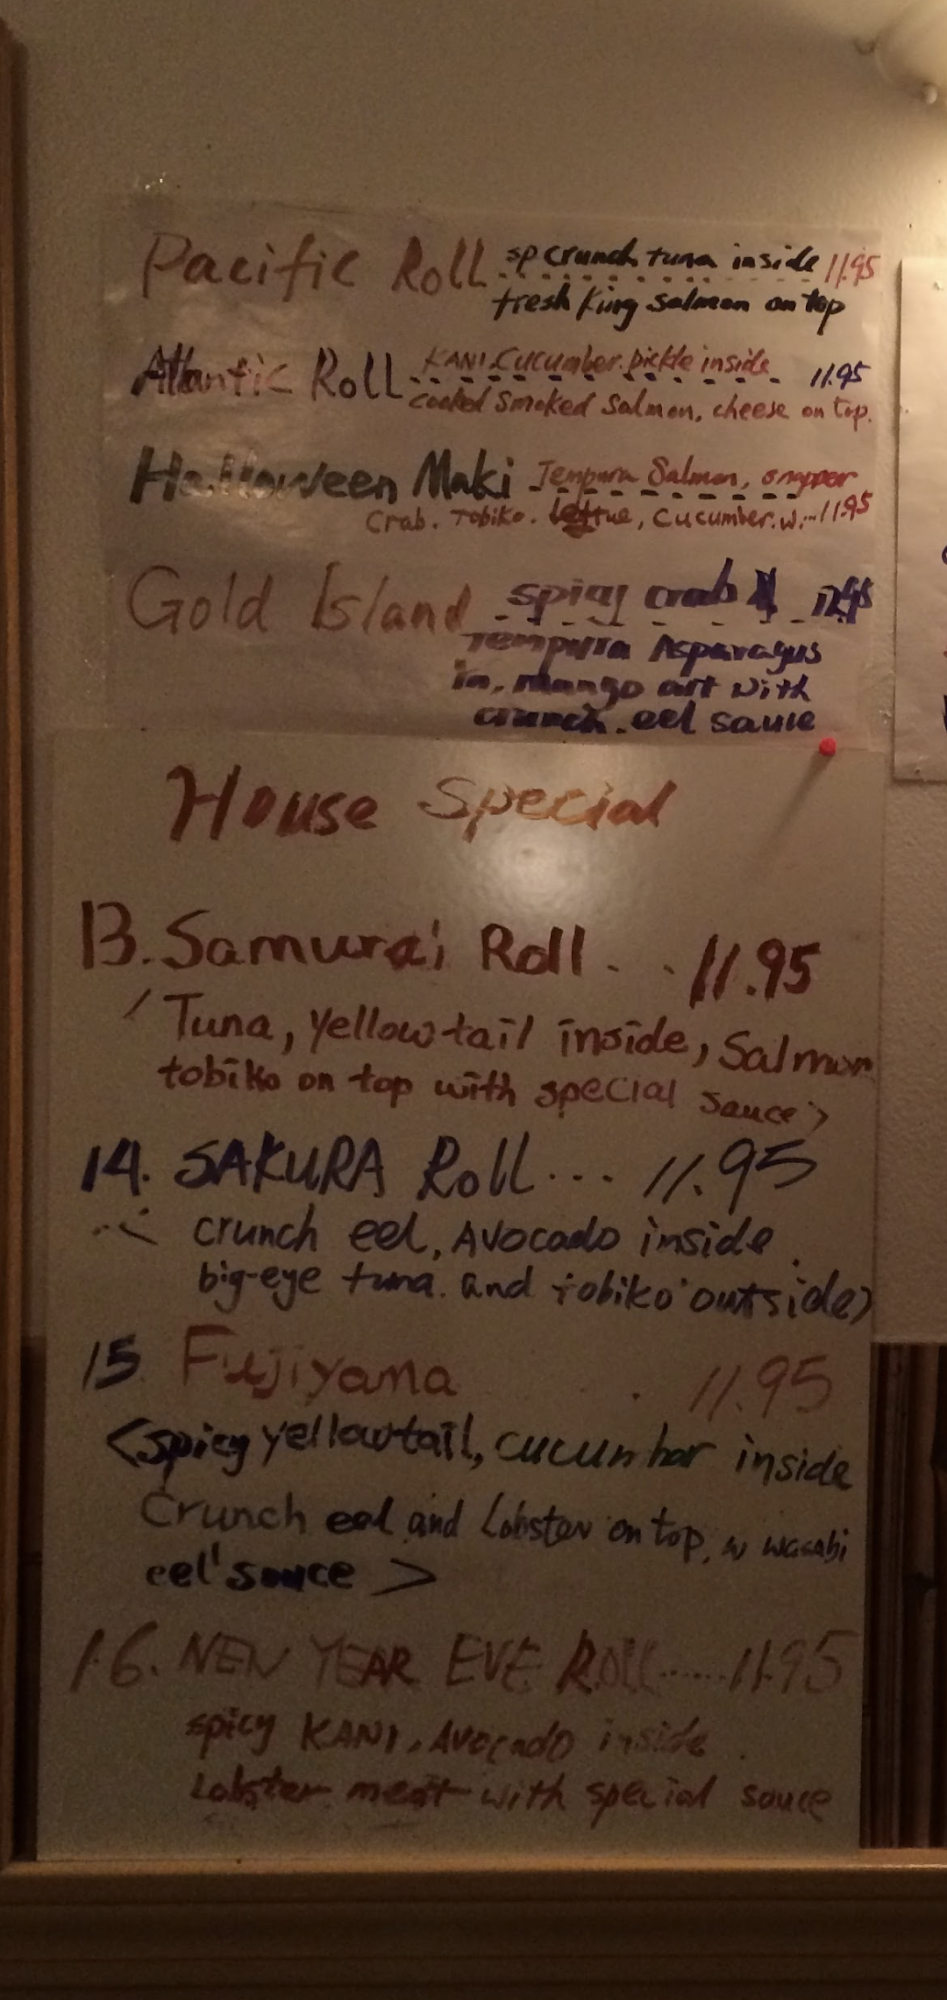 Pacific Roll sp crunch tuna inside 11.95
fresh King Salmon on top
Atlantic Roll KANI. Cucumber. pickle inside 11.95
cooked Smoked Salmon, cheese on top.
Halloween Maki Tempura Salmon, snapper
Crab. Tobiko. lettue, cucumber. w... 11.95
Gold Island spicy crab
Tempura Asparagus
in, mango art with
crunch. eel sauce
House Special
13. Samurai Roll . . 11.95
Tuna, yellowtail inside, Salmon
tobiko on top with special sauce>
14. SAKURA Roll... 11.95
< crunch eel, Avocado inside.
big-eye tuna. and tobiko outside)
15 Fujiyama . 11.95
<spicy yellowtail, cucumbar inside
Crunch eel and Lobster on top, w wasabi
eel sauce >
16. NEW YEAR EVE ROLL......11.95
spicy KANI, Avocado inside.
Lobster meat with special souce